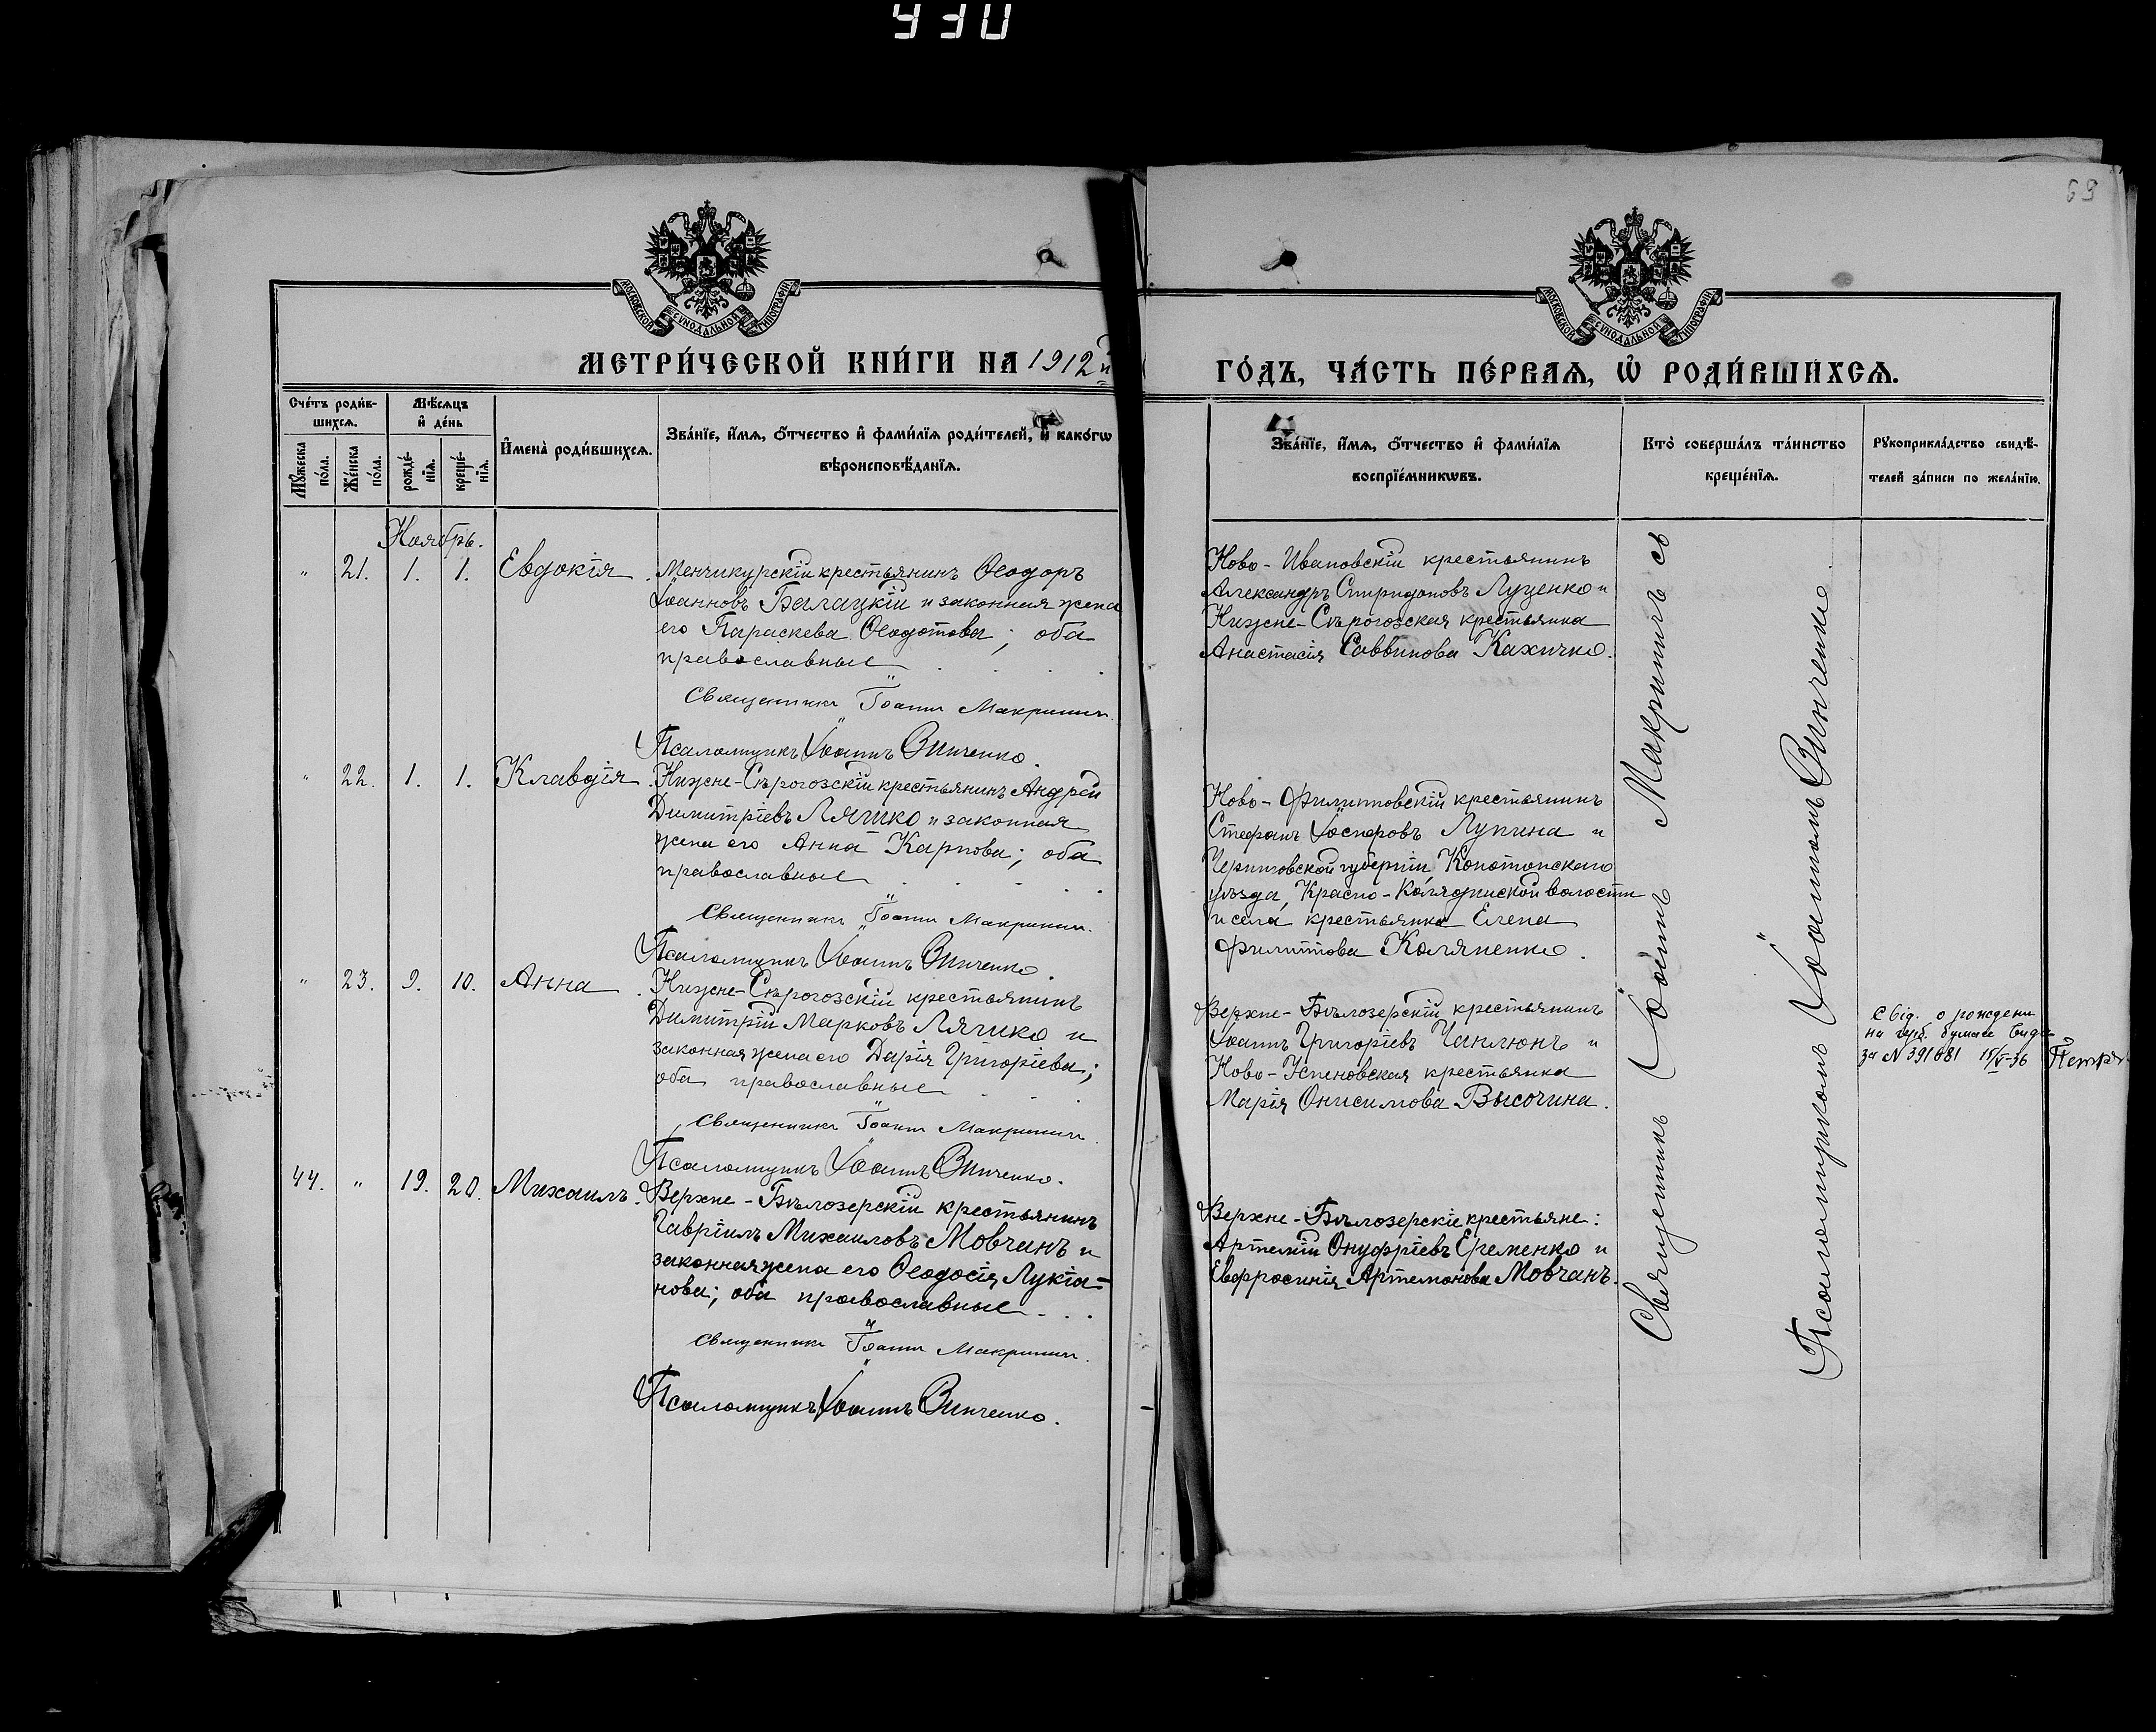 430
69
МОСКОВСКОЙ СѴНОДАЛЬНОЙ ТИПОГРАФІИ
МОСКОВСКОЙ СѴНОДАЛЬНОЙ ТИПОГРАФІИ
МЕТРИ́ЧЕСКОЙ КНИ́ГИ НА 1912й
ГО́ДЪ, ЧА́СТЬ ПЕ́РВАѦ, Ѡ҆ РОДИ́ВШИХСѦ.
Сче́тъ роди́в-
шихсѧ.
Мꙋ́жеска по́ла.
Же́нска по́ла.
Мѣ́сѧцъ
и҆ де́нь
рожде́-нїѧ.
креще́-нїѧ.
И҆мена̀ роди́вшихсѧ.
Зва́нїе, и҆́мѧ, ѻ҆́тчество и҆ фами́лїѧ роди́телей, и҆ како́гѡ
вѣроисповѣ́данїѧ.
Зва́нїе, и҆́мѧ, ѻ҆́тчество и҆ фами́лїѧ
воспрїе́мникѡвъ.
Кто̀ соверша́лъ та́инство
креще́нїѧ.
Рꙋкоприкла́дство свидѣ́-
телей за́писи по жела́нїю.
Ноябрь.
" 21. 1. 1. Евдокія
Менчикурскій крестьянинъ Ѳеодоръ
Іоанновъ Балацкій и законная жена
его Параскева Ѳеодотова; оба
православные
Священникъ Іоаннъ Макринич.
Псаломщикъ Іоаннъ Винченко.
Ново-Ивановскій крестьянинъ
Александръ Спиридоновъ Луценко и
Нижне-Сѣрогозская крестьянка
Анастасія Саввинова Кахичко.
" 22. 1. 1. Клавдія
Нижне-Сѣрогозскій крестьянинъ Андрей
Димитріевъ Лячико и законная
жена его Анна Карпова; оба
православные
Священникъ Іоаннъ Макринич.
Псаломщикъ Іоаннъ Винченко.
Ново-Филипповскій крестьянинъ
Стефанъ Іосифовъ Лупина и
Черниговской губерніи Конотопскаго
уѣзда, Красно-Колядинской волости
и села крестьянка Елена
Филиппова Коляненко.
" 23. 9. 10. Анна
Нижне-Сѣрогозскій крестьянинъ
Димитрій Марковъ Лячико и
законная жена его Дарія Григоріева;
оба православные
Священникъ Іоаннъ Макринич.
Псаломщикъ Іоаннъ Винченко.
Верхне-Бѣлозерскій крестьянинъ
Іоаннъ Григоріевъ Чанлюнъ и
Ново-Успеновская крестьянка
Марія Онисимова Высочина.
Свід. о рождени
на герб. бумаге видано
за N 391681 15/V-36 Петр
44. " 19. 20. Михаилъ.
Верхне-Бѣлозерскій крестьянинъ
Гавріилъ Михаиловъ Мовчанъ и
законная жена его Ѳеодосія Лукіа-
нова; оба православные
Священникъ Іоаннъ Макринич.
Псаломщикъ Іоаннъ Винченко.
Верхне-Бѣлозерскіе крестьяне:
Артемій Онуфріевъ Еременко и
Евфросинія Артемонова Мовчанъ.
Священникъ Іоаннъ Макриничъ съ
Псаломщикомъ Іоанномъ Винченко.